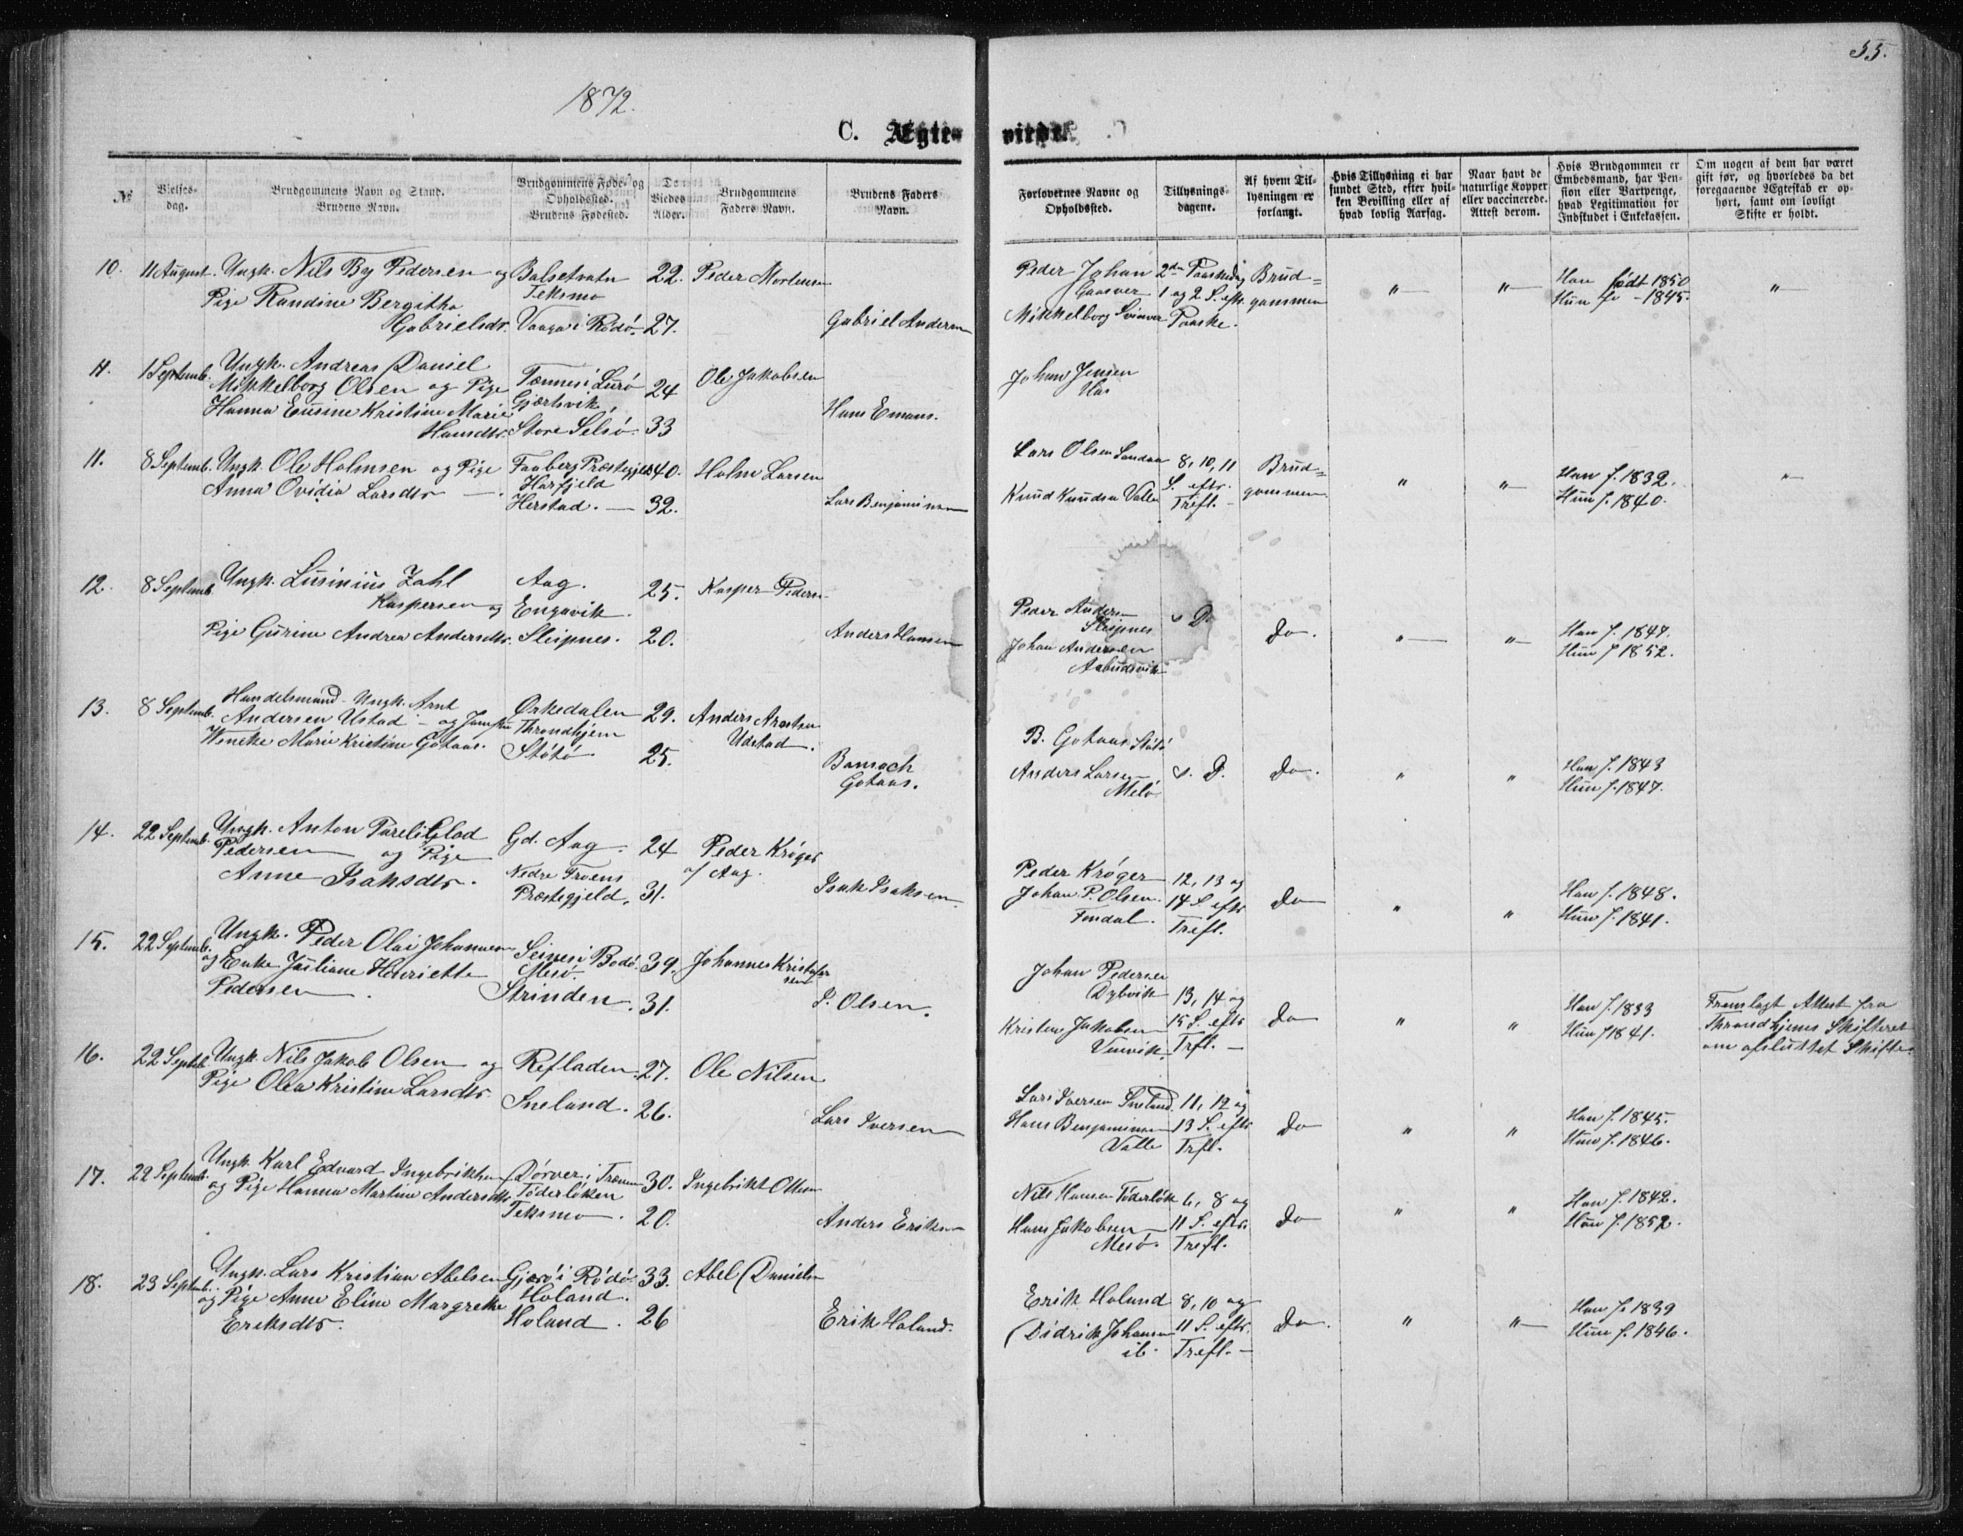 55.
1872.
C. Ægte- viede.
№
Vielses-
dag.
Brudgommens Navn og Stand.
Brudens Navn.
Brudgommens Føde- og
Opholdssted.
Brudens Fødested.
De
Viedes
Alder.
Brudgommens
Faders Navn.
Brudens Faders
Navn.
Forlovernes Navne og
Opholdssted.
Tillysnings-
dagene.
Af hvem Til-
lysningen er
forlangt.
Hvis Tillysning ei har
fundet Sted, efter hvil-
ken Bevilling eller af
hvad lovlig Aarsag.
Naar havt de
naturlige Kopper
eller vaccinerede.
Attest derom.
Hvis Brudgommen er
Embedsmand, har Pen-
sion eller Vartpenge,
hvad Legitimation for
Indskudet i Enkekassen.
Om nogen af dem har været
gift før, og hvorledes da det
foregaaende Ægteskab er op-
hørt, samt om lovligt
Skifte er holdt.
10. 11 August. Ungk. Nils By Pedersen og Balsetvatn 22. Peder Mortensen
Teksmo
Pige Randine Bergitha
Gabrielsdr. Vaaga i Rødø. 27. Gabriel Andersen
Peder Johan 2den Paaskedag Brud=
Gaasvær 1 og 2 S. eft. gommen " "
Mikkelborg Svinvær Paaske.
Han født 1850
Hun fo - 1845. "
11. 1 Septemb. Ungk. Andreas Daniel
Mikkelborg Olsen og Pige Tonnes i Lurø 24 Ole Jakobsen
Hanna Eusine Kristine Marie Gjærtsvik, Hans Emans.
Hansdtr. Store Selsø. 33
Johan Jensen
Haa
11. 8 Septemb. Ungk. Ole Holmsen og Pige Faaberg Præstegjeld 40. Holm Larsen
Anna Ovidia Larsdtr Harfjeld
Herstad. 32. Lars Benjaminsen
Lars Olsen Sandaa 8, 10, 11 Brud=
S. eftr. gommen " "
Knud Knudsen Valle Trefl.
Han f. 1832.
Hun f. 1840. "
12. 8 Septemb. Ungk. Lusinius Zahl Aag. 25. Kasper Peders
Kaspersen og Engavik.
Pige Gurine Andrea Andersdtr. Sleipnes. 20. Anders Hansen
Peder Anders
Sleipnes s. D. Do. " "
Johan Andersen
Aabudsvik
Han f. 1847.
Hun f. 1852.
13. 8 Septemb. Handelsmand Ungk. Arnt Ørkedalen 29. Anders Arntsen
Andersen Ustad og Jomfru Throndhjem Udstad.
Wencke Marie Kristine Gotaas. Støtø 25. Bansach
Gotaas.
B. Gotaas Støtø
Anders Larsen s. D. Do. " "
Melø.
Han f. 1843
Hun f. 1847.
14. 22 Septemb. Ungk. Anton Pareli Glad Gd. Aag. 24 Peder Krøger
Pedersen og Pige af Aag.
Anne Isaksdtr. Nedre Froens
Præstegjeld. 31. Isak Isaksen
Peder Krøger 12, 13 og
Johan P. Olsen 14 S. eftr Do " "
Fondal. Trefl.
Han f. 1848.
Hun f. 1841.
15. 22 Septemb. Ungk. Peder Olai Johannesen Seines i Bodø. 39. Johannes Kristofer
og Enke Juliane Henriette Mesø. sen
Pedersen. Strinden. 31. P. Olsen.
Johan Pedersen
Dybvik 13, 14 og
Kristen Jakobsen 15 S. eftr Do " "
Vinvik Trfl.
Han f. 1833
Hun f. 1841.
Fremlagt Attest fra
Throndhjems Skifteret
om afsluttet Skifte.
16. 22 Septb. Ungk. Nils Jakob Olsen og Refladen. 27. Ole Nilsen
Pige Olea Kristine Larsdtr Sneland. 26. Lars Iversen
Lars Iversen Sneland. 11, 12 og
Hans Benjaminsen 13 S. eftr Do " "
Valle Trfl.
Han f. 1845.
Hun f. 1846.
17. 22 Septemb. Ungk. Karl Edvard Ingebriktsen Dørvær i Trænen 30. Ingebrikt Olsen
og Pige Hanna Martine Andersdtr. Tøderløken
Teksmo. 20. Anders Eriksen
Nils Hansen Tøderløk 6, 8 og
Hans Jakobsen 11 S. eftr. Do " "
Mesø. Trefl.
Han f. 1842.
Hun f. 1852.
18. 23 Septemb. Ungk. Lars Kristian Abelsen Gjærø i Rødø. 33. Abel Danielsen
og Pige Anne Eline Margrethe Holand.
Eriksdtr. Holand. 26 Erik Holand.
Erik Holand 8, 10 og
Didrik Johansen 11 S. eftr. Do. " "
ib. Trefl.
Han f. 1839
Hun f. 1846.